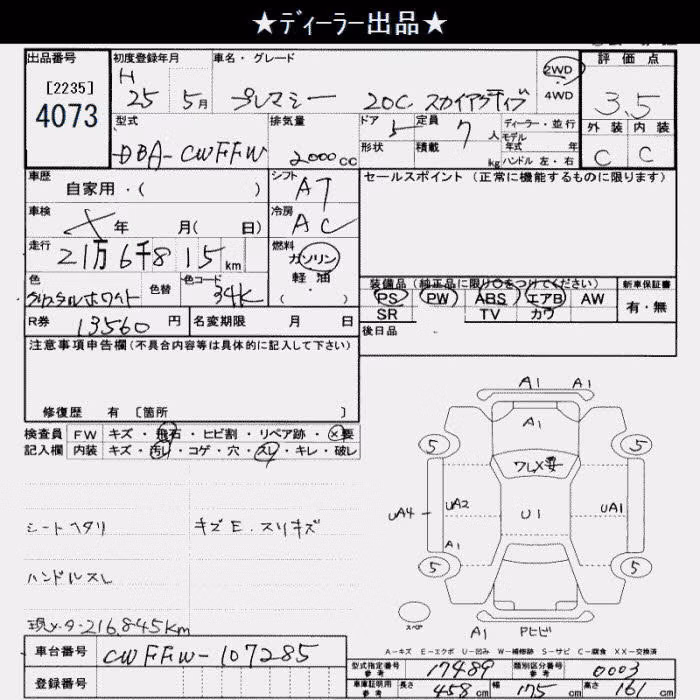 ★ディーラー出品★
出品番号 初度登録年月 車名・グレード 2WD 評価点
[2235] H 25 5月 プレマシー 20C スカイアクティブ 4WD 3.5
4073 型式 排気量 ドア 定員 ディーラー・並行 外装 内装
DBA-CWFFW 2000cc 5 7人 モデル年式 年 C C
形状 積載 kg ハンドル 左・右
車歴 シフト セールスポイント (正常に機能するものに限ります)
自家用・( ) AT
車検 冷房
X年 月( 日) AC
走行 燃料
21万6千815km ガソリン
色 色替 色コード 軽油 装備品 (純正品に限り○をつけてください) 新車保証書
クリスタルホワイト 34K ( ) PS PW ABS エアB AW 有・無
SR TV カワ
R券 13560円 名変期限 月 日 後日品
注意事項申告欄(不具合内容等は具体的に記入して下さい)
修復歴 有 [箇所 ]
検査員 FW キズ・飛石・ヒビ割・リペア跡・×要
記入欄 内装 キズ・汚レ・コゲ・穴・スレ・キレ・破レ
A1 A1
A1
5 5
ワレX要
UA4 UA2 U1 UA1
A1
5 5
スペア
A1 Pヒビ
シートヘタリ キズE.スリキズ
ハンドルスレ
現メータ-216,845km
A-キズ E-エクボ U-凹み W-補修跡 S-サビ C-腐食 XX-交換済
車台番号 CWFFW-107285
型式指定番号 参考 17489 類別区分番号 参考 0003
登録番号
車庫証明用 参考 長さ 458cm 幅 175cm 高さ 161cm